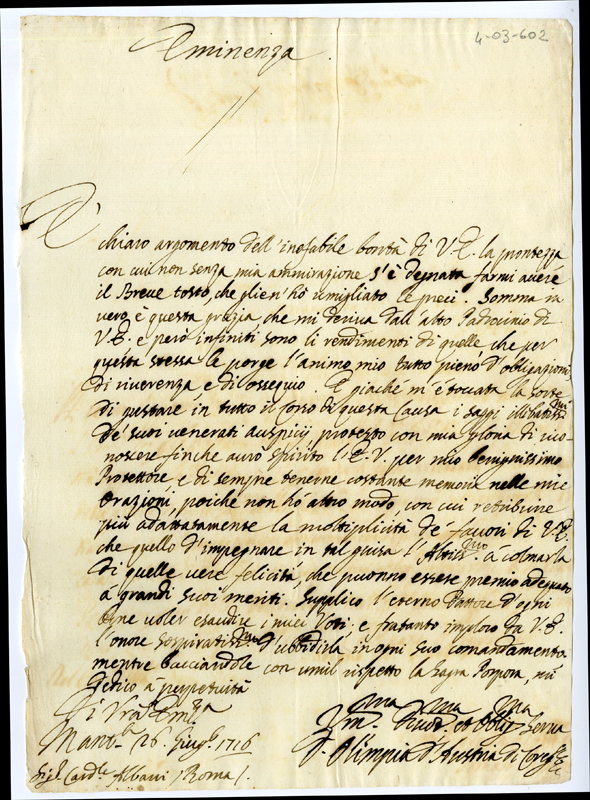 4-03-602
Eminenza
È
chiaro argomento dell'inefabile bontà di V. E. la prontezza
con cui non senza mia ammirazione s'è degnata farmi avere
il Breve tosto, che glien'hò umigliato le preci. Somma in
vero, è questa grazia che mi deriva dall'alto Padrocinio di
V. E. e però infiniti sono li rendimenti di quelle che per
questa stessa le porge l'animo mio tutto pieno d'obligazioni
di riverenza e di ossequio. E giache m'è toccata la sorte
di gustare in tutto il corso di questa Causa i saggi illibatissmi
de' suoi venerati Auspicij, protesto con mia gloria di rico-
noscere finche aurò spirito l'E. V. per mio benignissimo
Protettore e di sempre tenerne costante memoria nelle mie
Orazioni, poiche non hò altro modo, con cui retribuire
più adattatamente la moltiplicità de' favori di V. E.
che quello d'impegnare in tal guisa l'Altissmo à colmarla
di quelle vere felicità, che puonno essere premio adequato
a grandi suoi meriti. Supplico l'eterno Dattore d'ogni
bene voler esaudire i miei Voti e fratanto imploro da V. E.
l'onore sospiratissmo d'ubbidirla in ogni suo comandamento
mentre bacciandole con umil rispetto la sagra Porpora, mi
dedico à perpetuità
Di Vra Emza
Manta 26 Giugo 1716
Umma Divma et Obligma Serva
D. Olimpia d'Austria di Coregio
Sigr Cardle Albani (Roma)